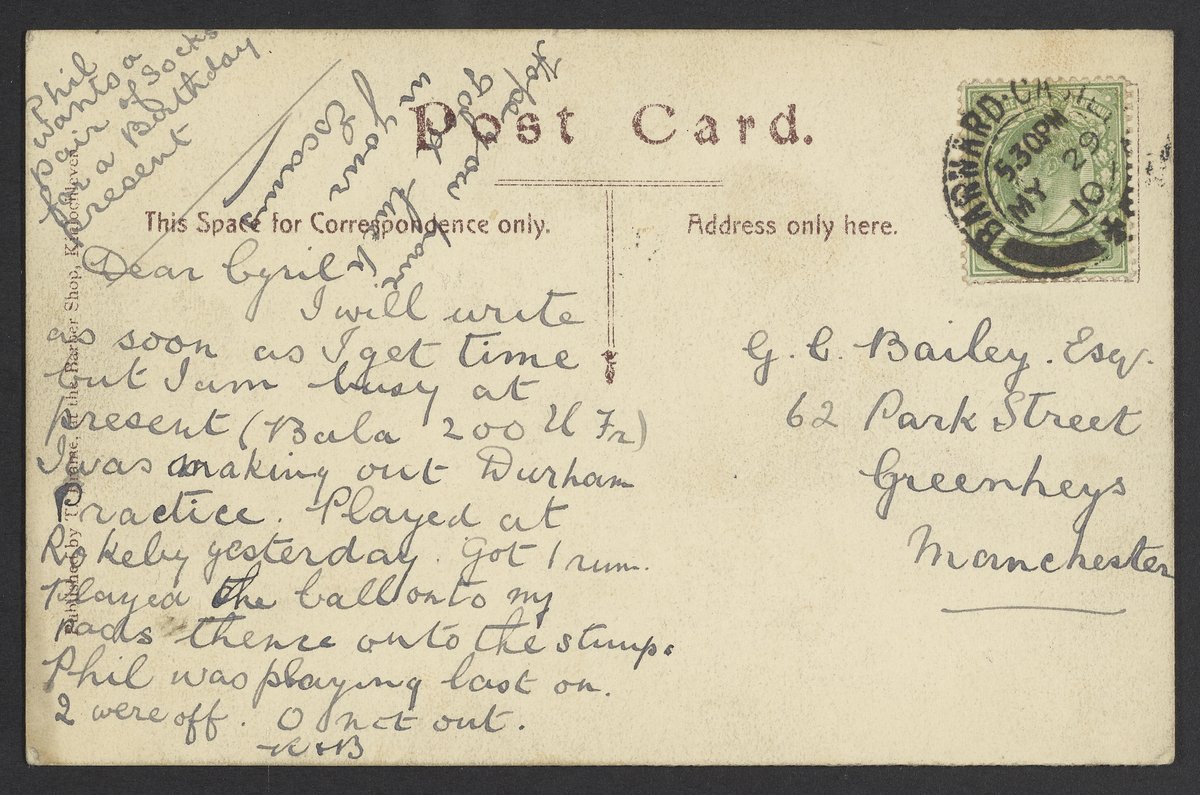 Phil
wants a
pair of Socks
for a Birthday
Present
Hope you have
good luck
in your
Exam
Post Card.
This Space for Correspondence only.
Address only here.
BARNARD CASTLE
5.30PM
MY 29
10
Dear Cyril
I will write
as soon as I get time
but I am busy at
present (Bala 200 U Fr)
I was making out Durham
Practice. Played at
Rokeby yesterday. Got 1 run.
Played the ball onto my
pads thence onto the stumps
Phil was playing last on.
2 were off. 0 not out.
G. C. Bailey. Esq.
62 Park Street
Greenheys
Manchester
Published by at the Barber Shop, Kinlochleven